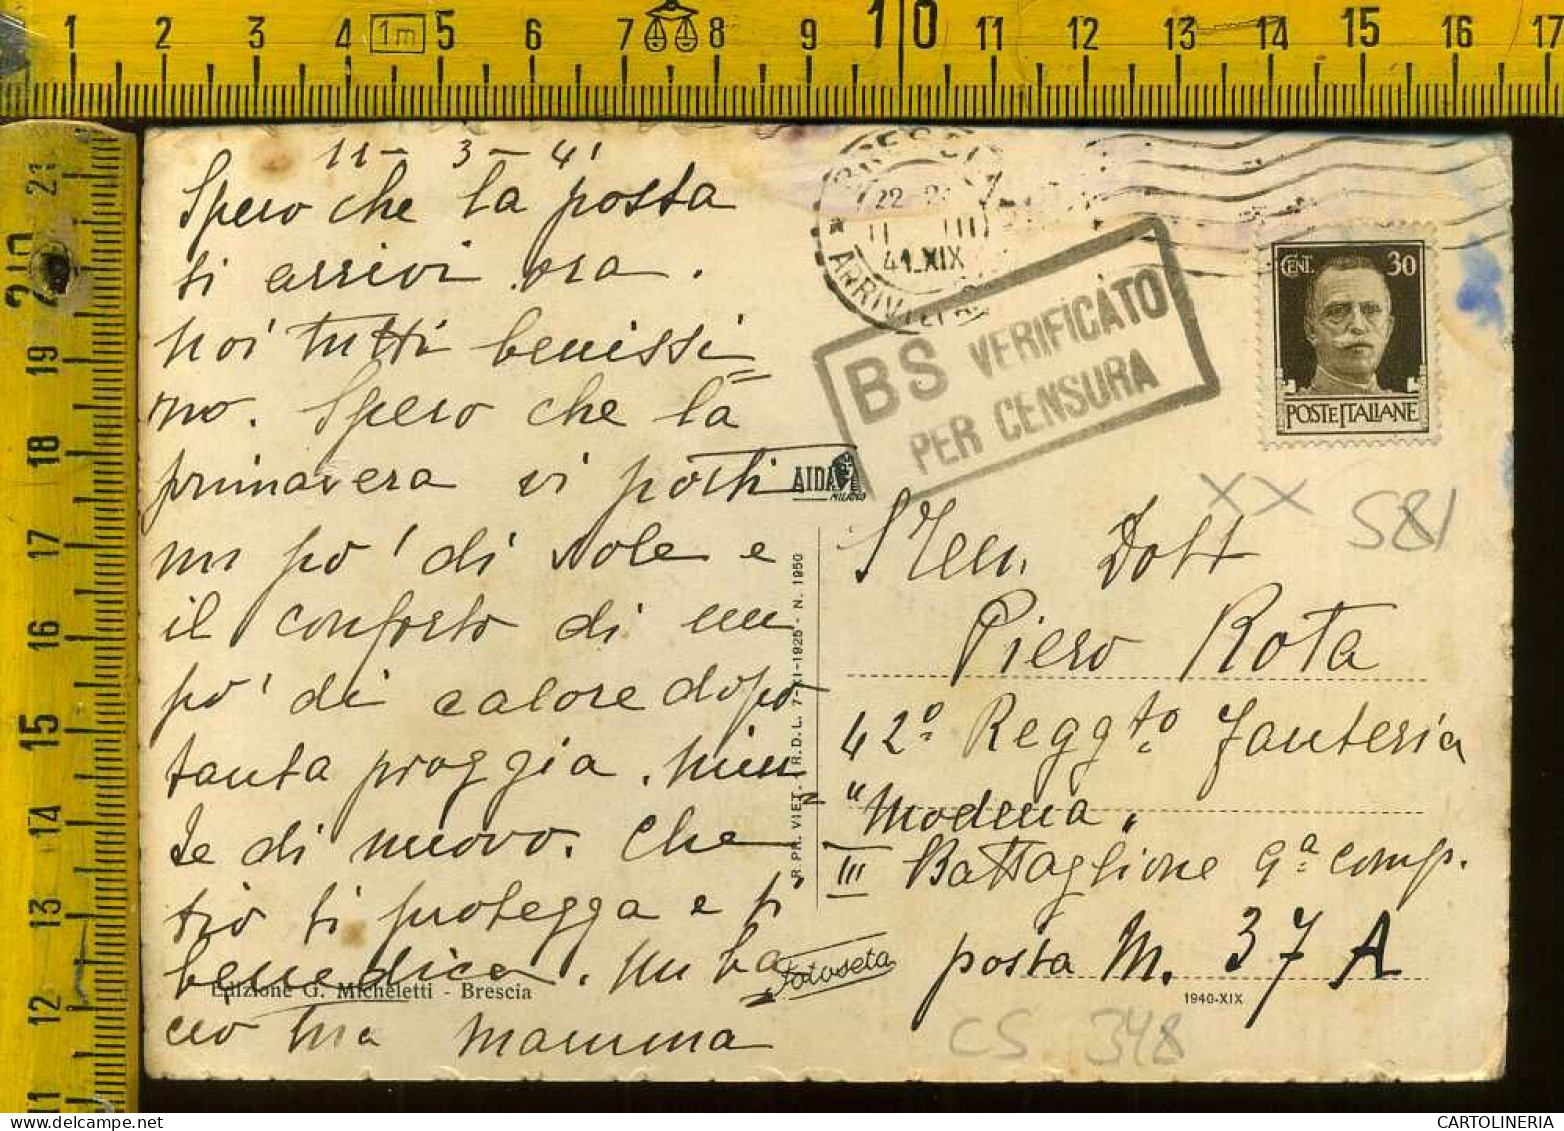 1 2 3 4 1m 5 6 7 8 9 10 11 12 13 14 15 16 17
21
20
19
18
17
16
15
14
13
12
11
11-3-41
Spero che la posta
ti arrivi ora.
Noi tutti benissi=
mo. Spero che la
primavera vi porti
un po' di sole e
il conforto di un
po' di calore dopo
tanta pioggia. Nien=
te di nuovo. Che
Dio ti protegga e ti
benedica. Un ba=
cio tua mamma
Edizione G. Micheletti - Brescia
BRESCIA
22-2
11 III
41.XIX
BS VERIFICATO
PER CENSURA
CENT. 30
POSTE ITALIANE
AIDA
MILANO
R. PR. VIET. - R.D.L. 7-XI-1925 - N. 1950
Fotoseta
XX 581
S Ten. Dott
Piero Rota
42° Regg.to Fanteria
"Modena"
III Battaglione 9ª comp.
posta M. 37 A
1940-XIX
CS 348
CARTOLINERIA